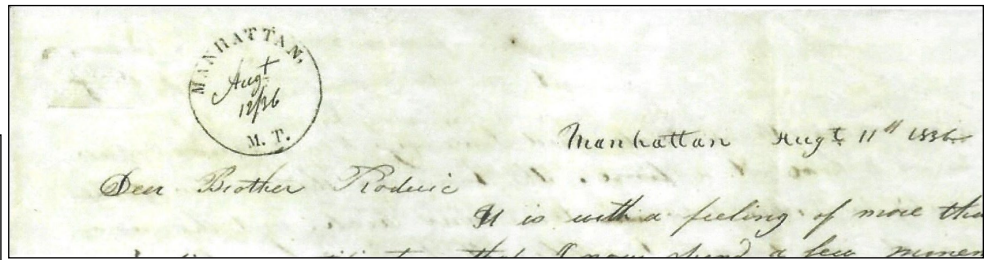 MANHATTAN,
Augt
12/36
M. T.
Manhattan Augt 11th 1836
Dear Brother Roderic
It is with a feeling of more than
that I now spend a few momen